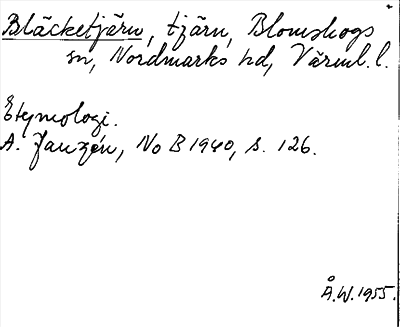 Bläcketjärn, tjärn, Blomskogs
sn, Nordmarks hd, Värml. l.
Etymologi.
A. Janzén, NoB 1940, s. 126.
Å.W. 1955.